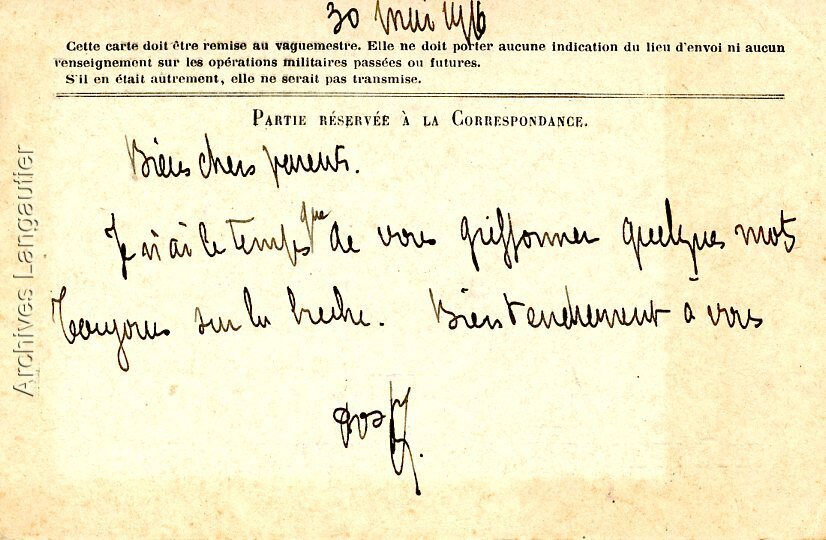 30 mai 1916
Cette carte doit être remise au vaguemestre. Elle ne doit porter aucune indication du lieu d'envoi ni aucun
renseignement sur les opérations militaires passées ou futures.
S'il en était autrement, elle ne serait pas transmise.
PARTIE RÉSERVÉE À LA CORRESPONDANCE.
Biens chers parents.
Je n'ai le temps que de vous griffonner quelques mots
Toujours sur la breche. Bien tendrement à vous
Archives Langautier